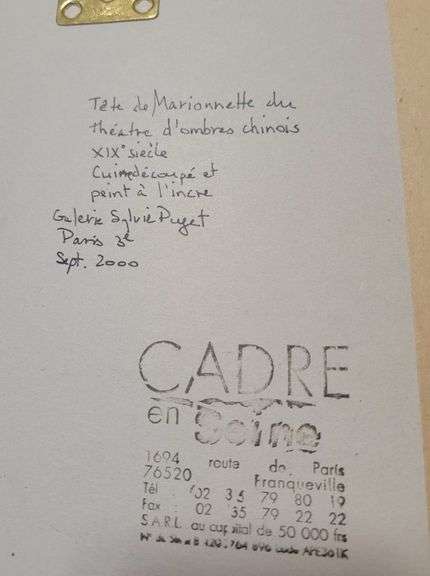 Tête de Marionnette du
théâtre d'ombres chinois
XIXe siècle
Cuir découpé et
peint à l'incre
Galerie Sylvie Puget
Paris 3e
Sept. 2000
CADRE
en Seine
1694 route de Paris
76520 Franqueville
Tél : 02 35 79 80 19
Fax : 02 35 79 22 22
S.A.R.L. au capital de 50 000 frs